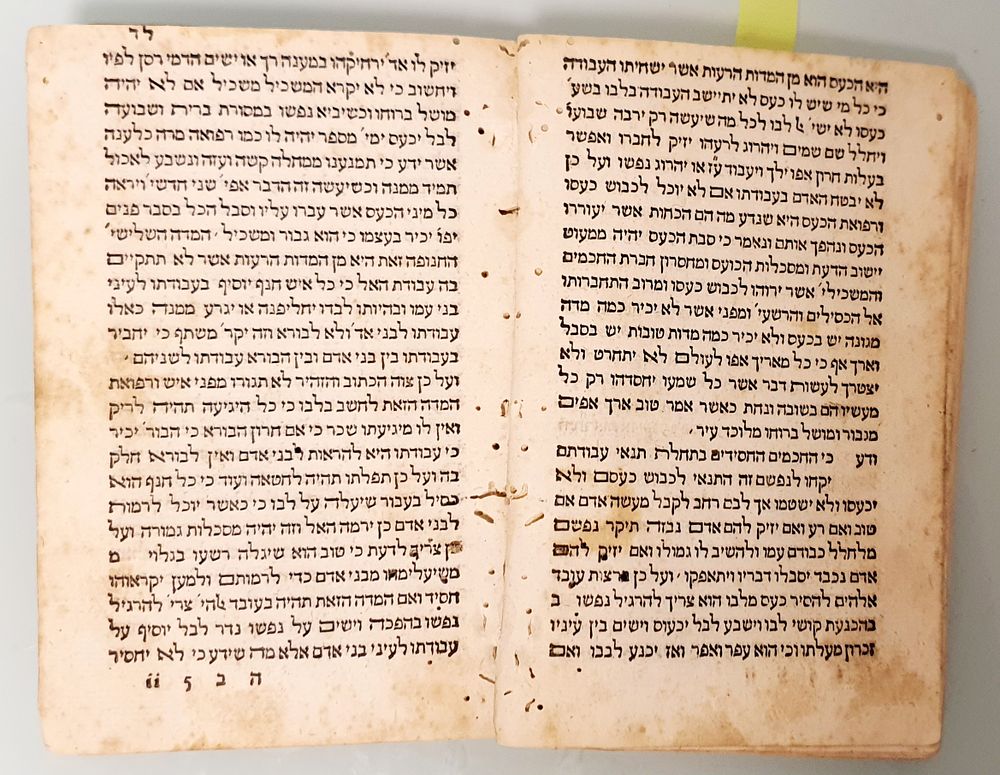 היא הכעס הוא מן המדות הרעות אשר ישחיתו העבודה
כי כל מי שיש לו כעס לא יתיישב העבודה בלבו בשע׳
כעסו לא ישי׳ לבו לכל מה שיעשה רק ירבה שבועו׳
ויחלל שם שמים ויהרוג לרעהו יזיק לחברו ואפשר
בעלות חרון אפו ילך ויעבוד עז או יהרוג נפשו ועל כן
לא יבטח האדם בעבודתו אם לא יוכל לכבוש כעסו
ורפואת הכעס היא שנדע מה הם הכחות אשר יעוררו
הכעס ונהפך אותם ונאמר כי סבת הכעס יהיה ממעוט
יישוב הדעת ומסכלות הכועס ומחסרון חברת החכמים
והמשכילי׳ אשר ירוהו לכבוש כעסו ומרוב התחברותו
אל הכסילים והרשעי׳ ומפני אשר לא יכיר כמה מדה
מגונה יש בכעס ולא יכיר כמה מדות טובות יש בסבל
וארך אף כי כל מאריך אפו לעולם לא יתחרט ולא
יצטרך לעשות דבר אשר כל שמעו יחסדהו רק כל
מעשיו הם בשובה ונחת כאשר אמר טוב ארך אפים
מגבור ומושל ברוחו מלוכד עיר׳
ודע כי החכמים החסידים בתחלת תנאי עבודתם
יקחו לנפשם זה התנאי לכבוש כעסם ולא
יכעסו ולא ישטמו אך לבם רחב לקבל מעשה אדם אם
טוב ואם רע ואם יזיק להם אדם נבזה תיקר נפשם
מלחלל כבודם עמו ולהשיב לו גמולו ואם יזיק להם
אדם נכבד יסבלו דבריו ויתאפקו׳ ועל כן ברצות עובד
אלהים להסיר כעס מלבו הוא צריך להרגיל נפשו ב
בהכנעת קושי לבו וישבע לבל יכעוס וישים בין עיניו
זכרון מעלתו וכי הוא עפר ואפר ואז יכנע לבבו ואם
לד
יזיק לו אד׳ ירחיקהו במענה רך או ישים הדמי רסן לפיו
ויחשוב כי לא יקרא המשכיל משכיל אם לא יהיה
מושל ברוחו וכשיביא נפשו במסורת ברית ושבועה
לבל יכעס ימי׳ מספר יהיה לו כמו רפואה מרה כלענה
אשר ידע כי תמנענו ממחלה קשה ועזה ונשבע לאכול
תמיד ממנה וכשיעשה זה הדבר אפי׳ שני חדשי׳ ויראה
כל מיני הכעס אשר עברו עליו וסבל הכל בסבר פנים
יפו׳ יכיר בעצמו כי הוא גבור ומשכיל׳ המדה השלישי׳
החנופה זאת היא מן המדות הרעות אשר לא תתקיים
בה עבודת האל כי כל איש חנף יוסיף בעבודתו לעיני
בני עמו ובהיותו לבדו יחליפנה או יגרע ממנה כאלו
עבודתו לבני אד׳ ולא לבורא וזה יקר׳ משתף כי יחביר
בעבודתו בין בני אדם ובין הבורא עבודתו לשניהם׳
ועל כן צוה הכתוב והזהיר לא תגורו מפני איש ורפואת
המדה הזאת לחשב בלבו כי כל היגיעה תהיה לריק
ואין לו מיגיעתו שכר כי אם חרון הבורא כי הבור׳ יכיר
כי עבודתו היא להראות לבני אדם ואין לבורא חלק
בה ועל כן תפלתו תהיה לחטאה ועוד כי כל חנף הוא
כסיל בעבור שיעלה על לבו כי כאשר יוכל לרמות
לבני אדם כן ירמה האל וזה יהיה מסכלות גמורה ועל
כן צריך לדעת כי טוב הוא שיגלה רשעו בגלוי מ
משיעלימהו מבני אדם כדי לרמותם ולמען יקראוהו
חסיד ואם המדה הזאת תהיה בעובד צרי׳ להרגיל
נפשו בהפכה וישים על נפשו נדר לבל יוסיף על
עבודתו לעיני בני אדם אלא מה שידע כי לא יחסיר
ה ב 5 ii